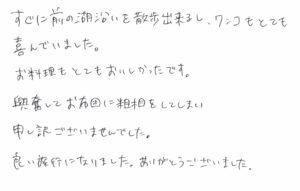 すぐに前の湖沿いを散歩出来るし、ワンコもとても
喜んでいました。
お料理もとてもおいしかったです。
興奮してお布団に粗相をしてしまい
申し訳ございませんでした。
良い旅行になりました。ありがとうございました。